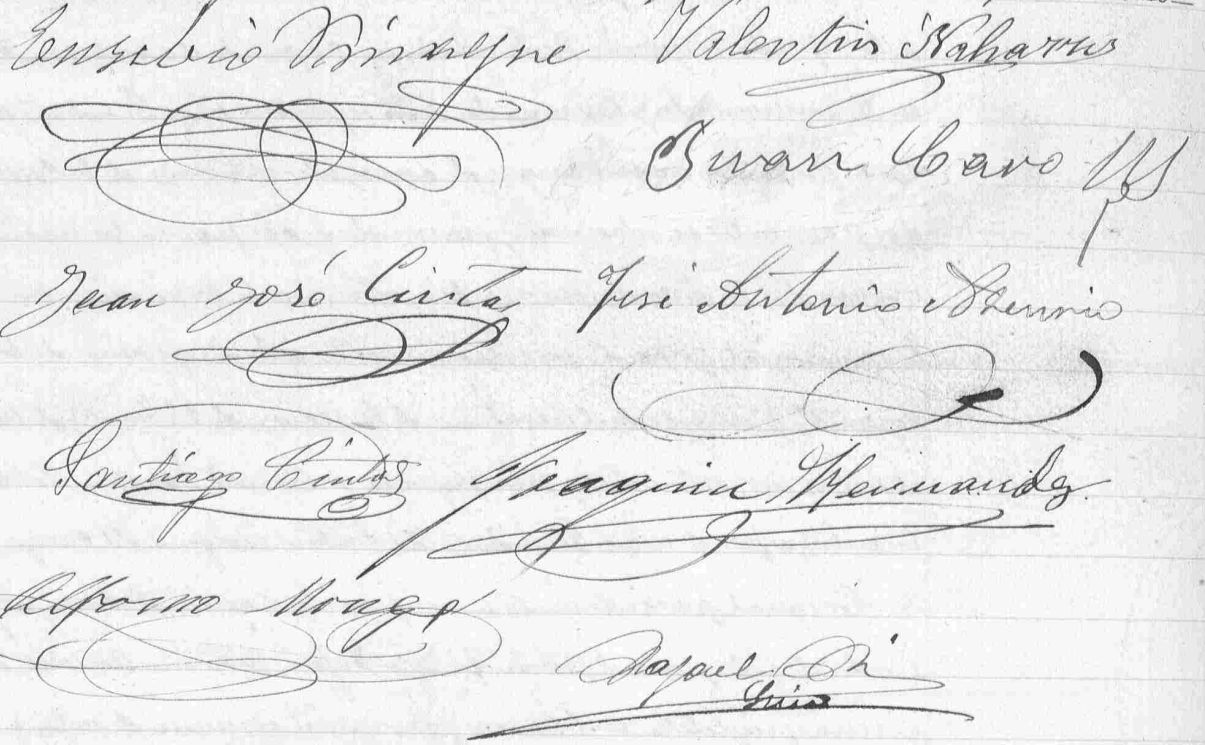 Eusebio Valentin Naharro
Juan Caro
Juan José Cinta José Antonio
Santiago Cintas Joaquin Hernandez
Alfonso Monge
Rafael